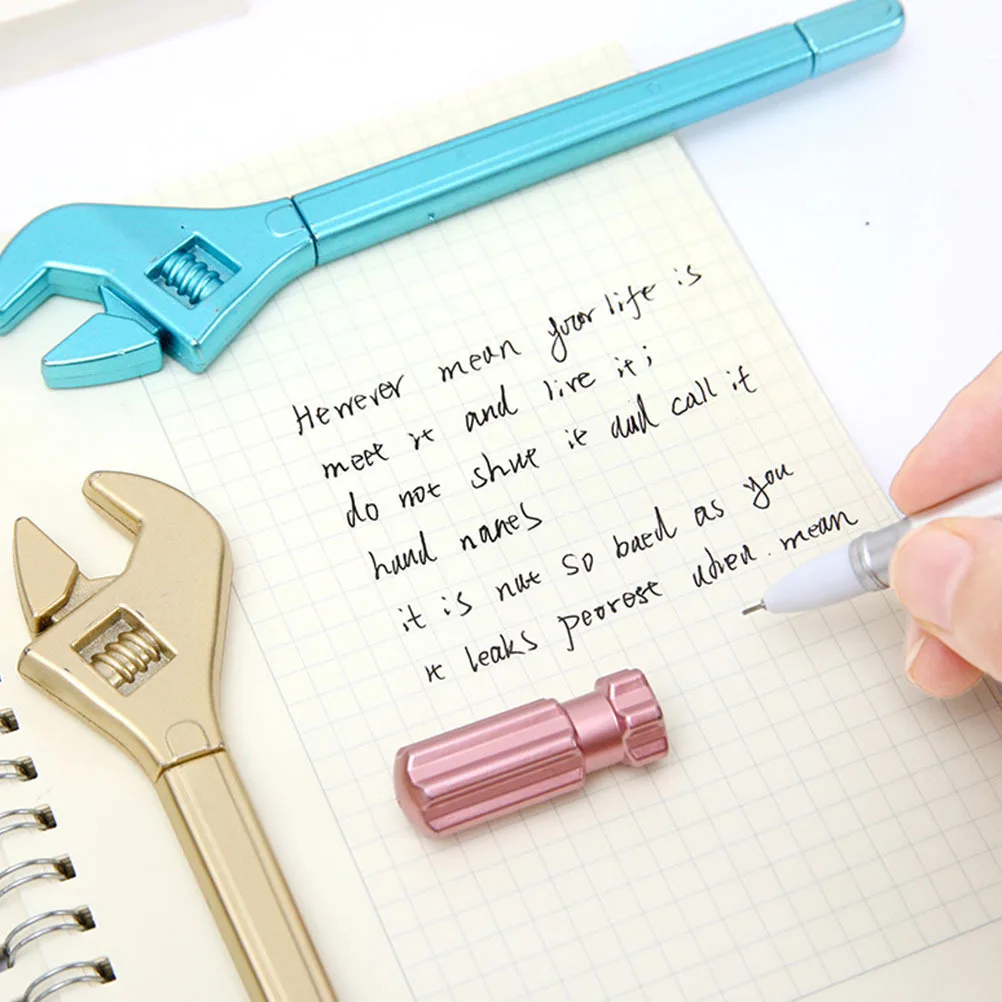 However mean your life is
meet it and live it;
do not shue it aud call it
hand nanes
it is nut so baed as you
it leaks peorest when mean